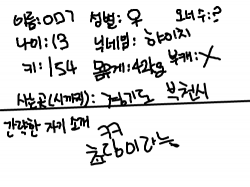 이름: ㅁㅁ7 성별: ♀ 오너수: ?
나이: 13 닉네임: 햐이지
키: 154 몸무게: 42kg 부캐: X
사는곳(시까지): 경기도 부천시
간략한 자기 소개
ㅋㅋ
흐랑이라능